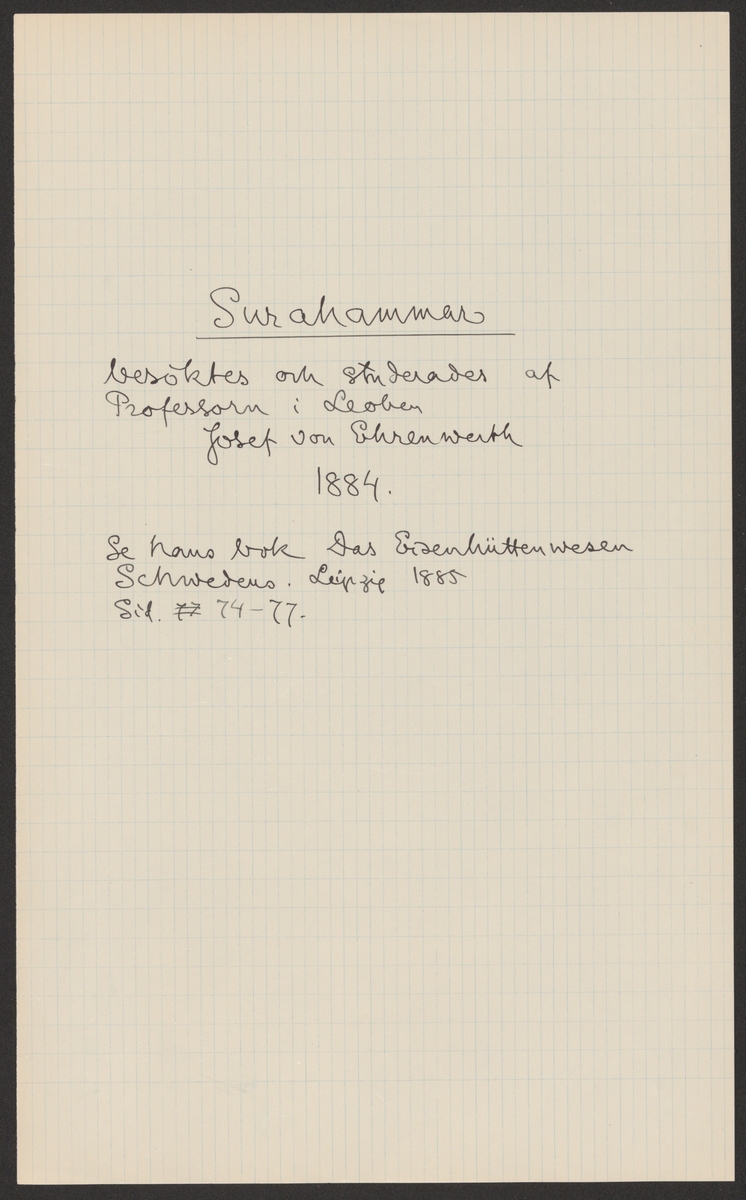 Surahammar
besöktes och studerades af
Professorn i Leoben
Josef von Ehrenwerth
1884.
Se hans bok Das Eisenhüttenwesen
Schwedens. Leipzig 1885
Sid. 77 74-77.